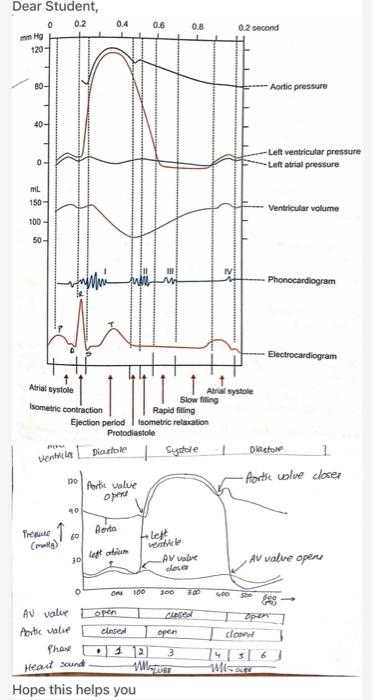 Dear Student,
0 0.2 0.4 0.6 0.8 0.2 second
mm Hg
120
80
40
0
Aortic pressure
Left ventricular pressure
Left atrial pressure
mL
150
100
50
Ventricular volume
I II III IV
Phonocardiogram
R
P Q S T
Electrocardiogram
Atrial systole Atrial systole
Slow filling
Isometric contraction Rapid filling
Ejection period Isometric relaxation
Protodiastole
Ventricles Diastole Systole Diastole
120 Aortic valve opens Aortic valve closes
90
Aorta
Pressure (mmHg) 60
Left ventricle
Left atrium
AV valve closes
AV valve opens
30
0 100 200 300 400 500
AV valve open closed open
Aortic valve closed open closed
Phase 1 2 3 4 5 6
Heart sound
Hope this helps you